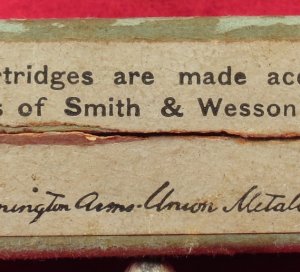 rtridges are made acc
s of Smith & Wesson
mington Arms-Union Metall